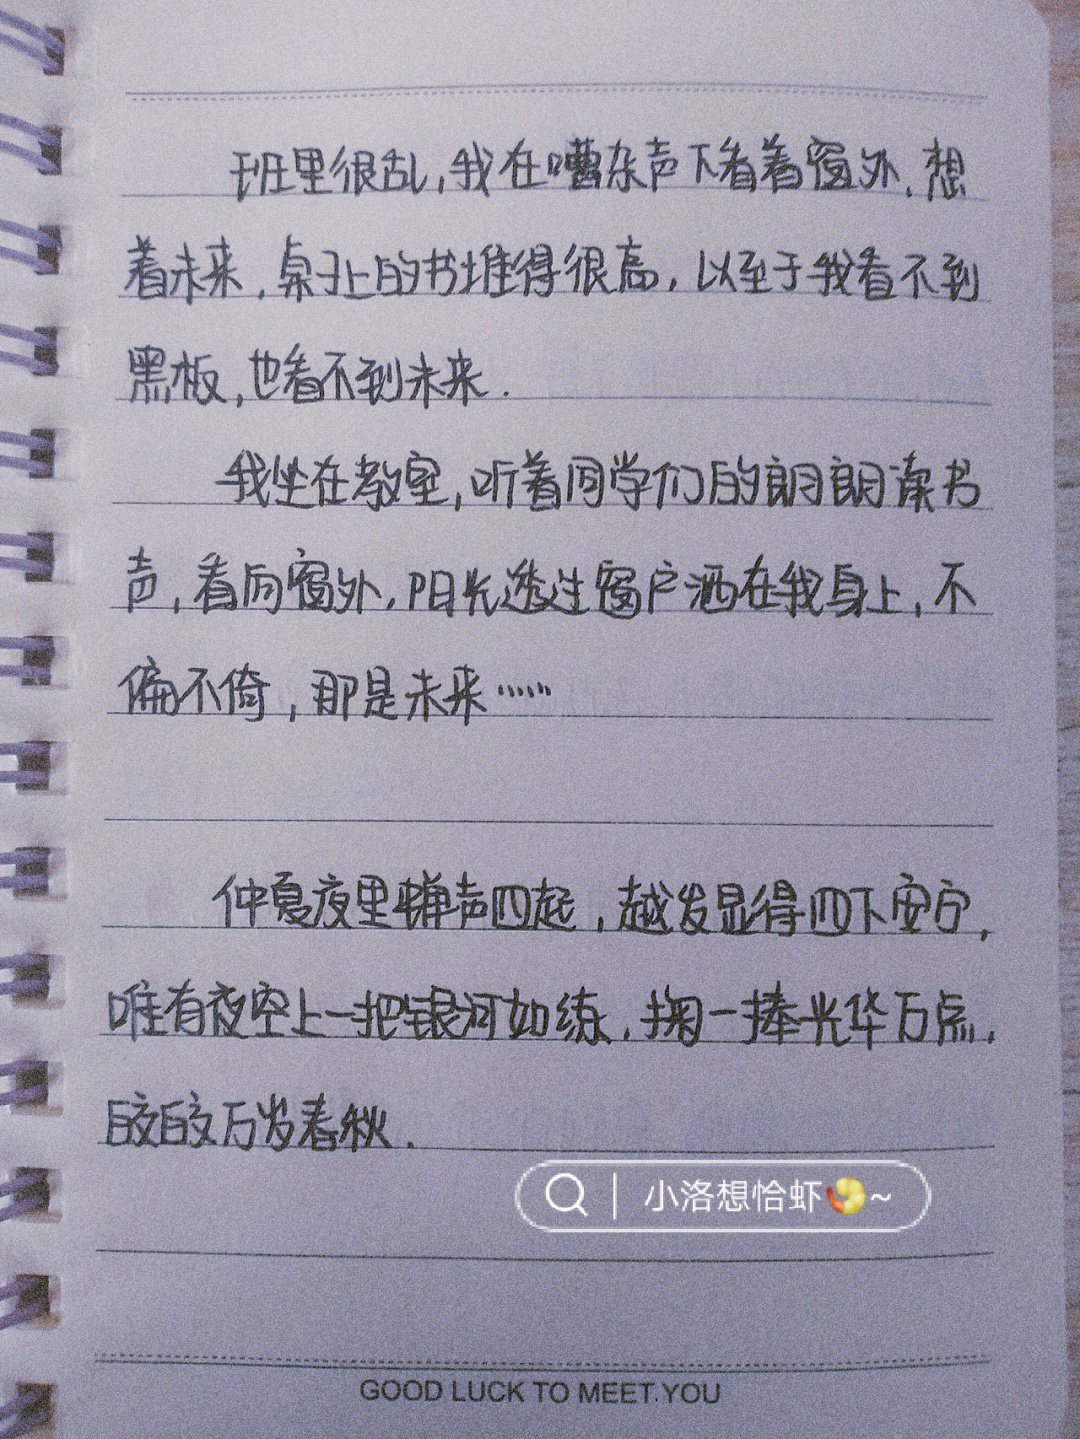 班里很乱,我在嘈杂声下看着窗外,想
着未来,桌子上的书堆得很高,以至于我看不到
黑板,也看不到未来.
我坐在教室,听着同学们的朗朗读书
声,看向窗外,阳光透过窗户洒在我身上,不
偏不倚,那是未来……
仲夏夜里蝉声四起,越发显得四下安宁,
唯有夜空上一把银河如练,掬一捧光华万点,
皎皎万岁春秋.
小洛想恰虾🍤~
GOOD LUCK TO MEET YOU